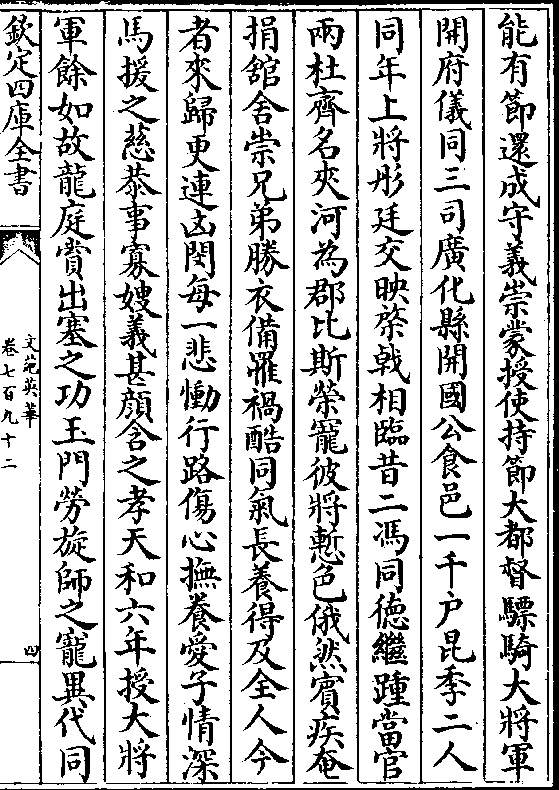 能有節還成守義崇蒙授使持節大都督驃騎大將軍
開府儀同三司廣化縣開國公食邑一千户昆季二人
同年上將彤廷交映棨戟相臨昔二馮同德繼踵當官
兩杜齊名夾河為郡比斯榮寵彼將慙色俄然賓疾奄
捐舘舍崇兄弟勝衣備罹禍酷同氣長養得及全人今
者來歸更連凶閔每一悲慟行路傷心撫養愛子情深
馬援之慈恭事寡嫂義甚顔含之孝天和六年授大將
軍餘如故龍庭賞出塞之功玉門勞旋師之寵異代同
欽定四庫全書
文苑英華
卷七百九十二
四